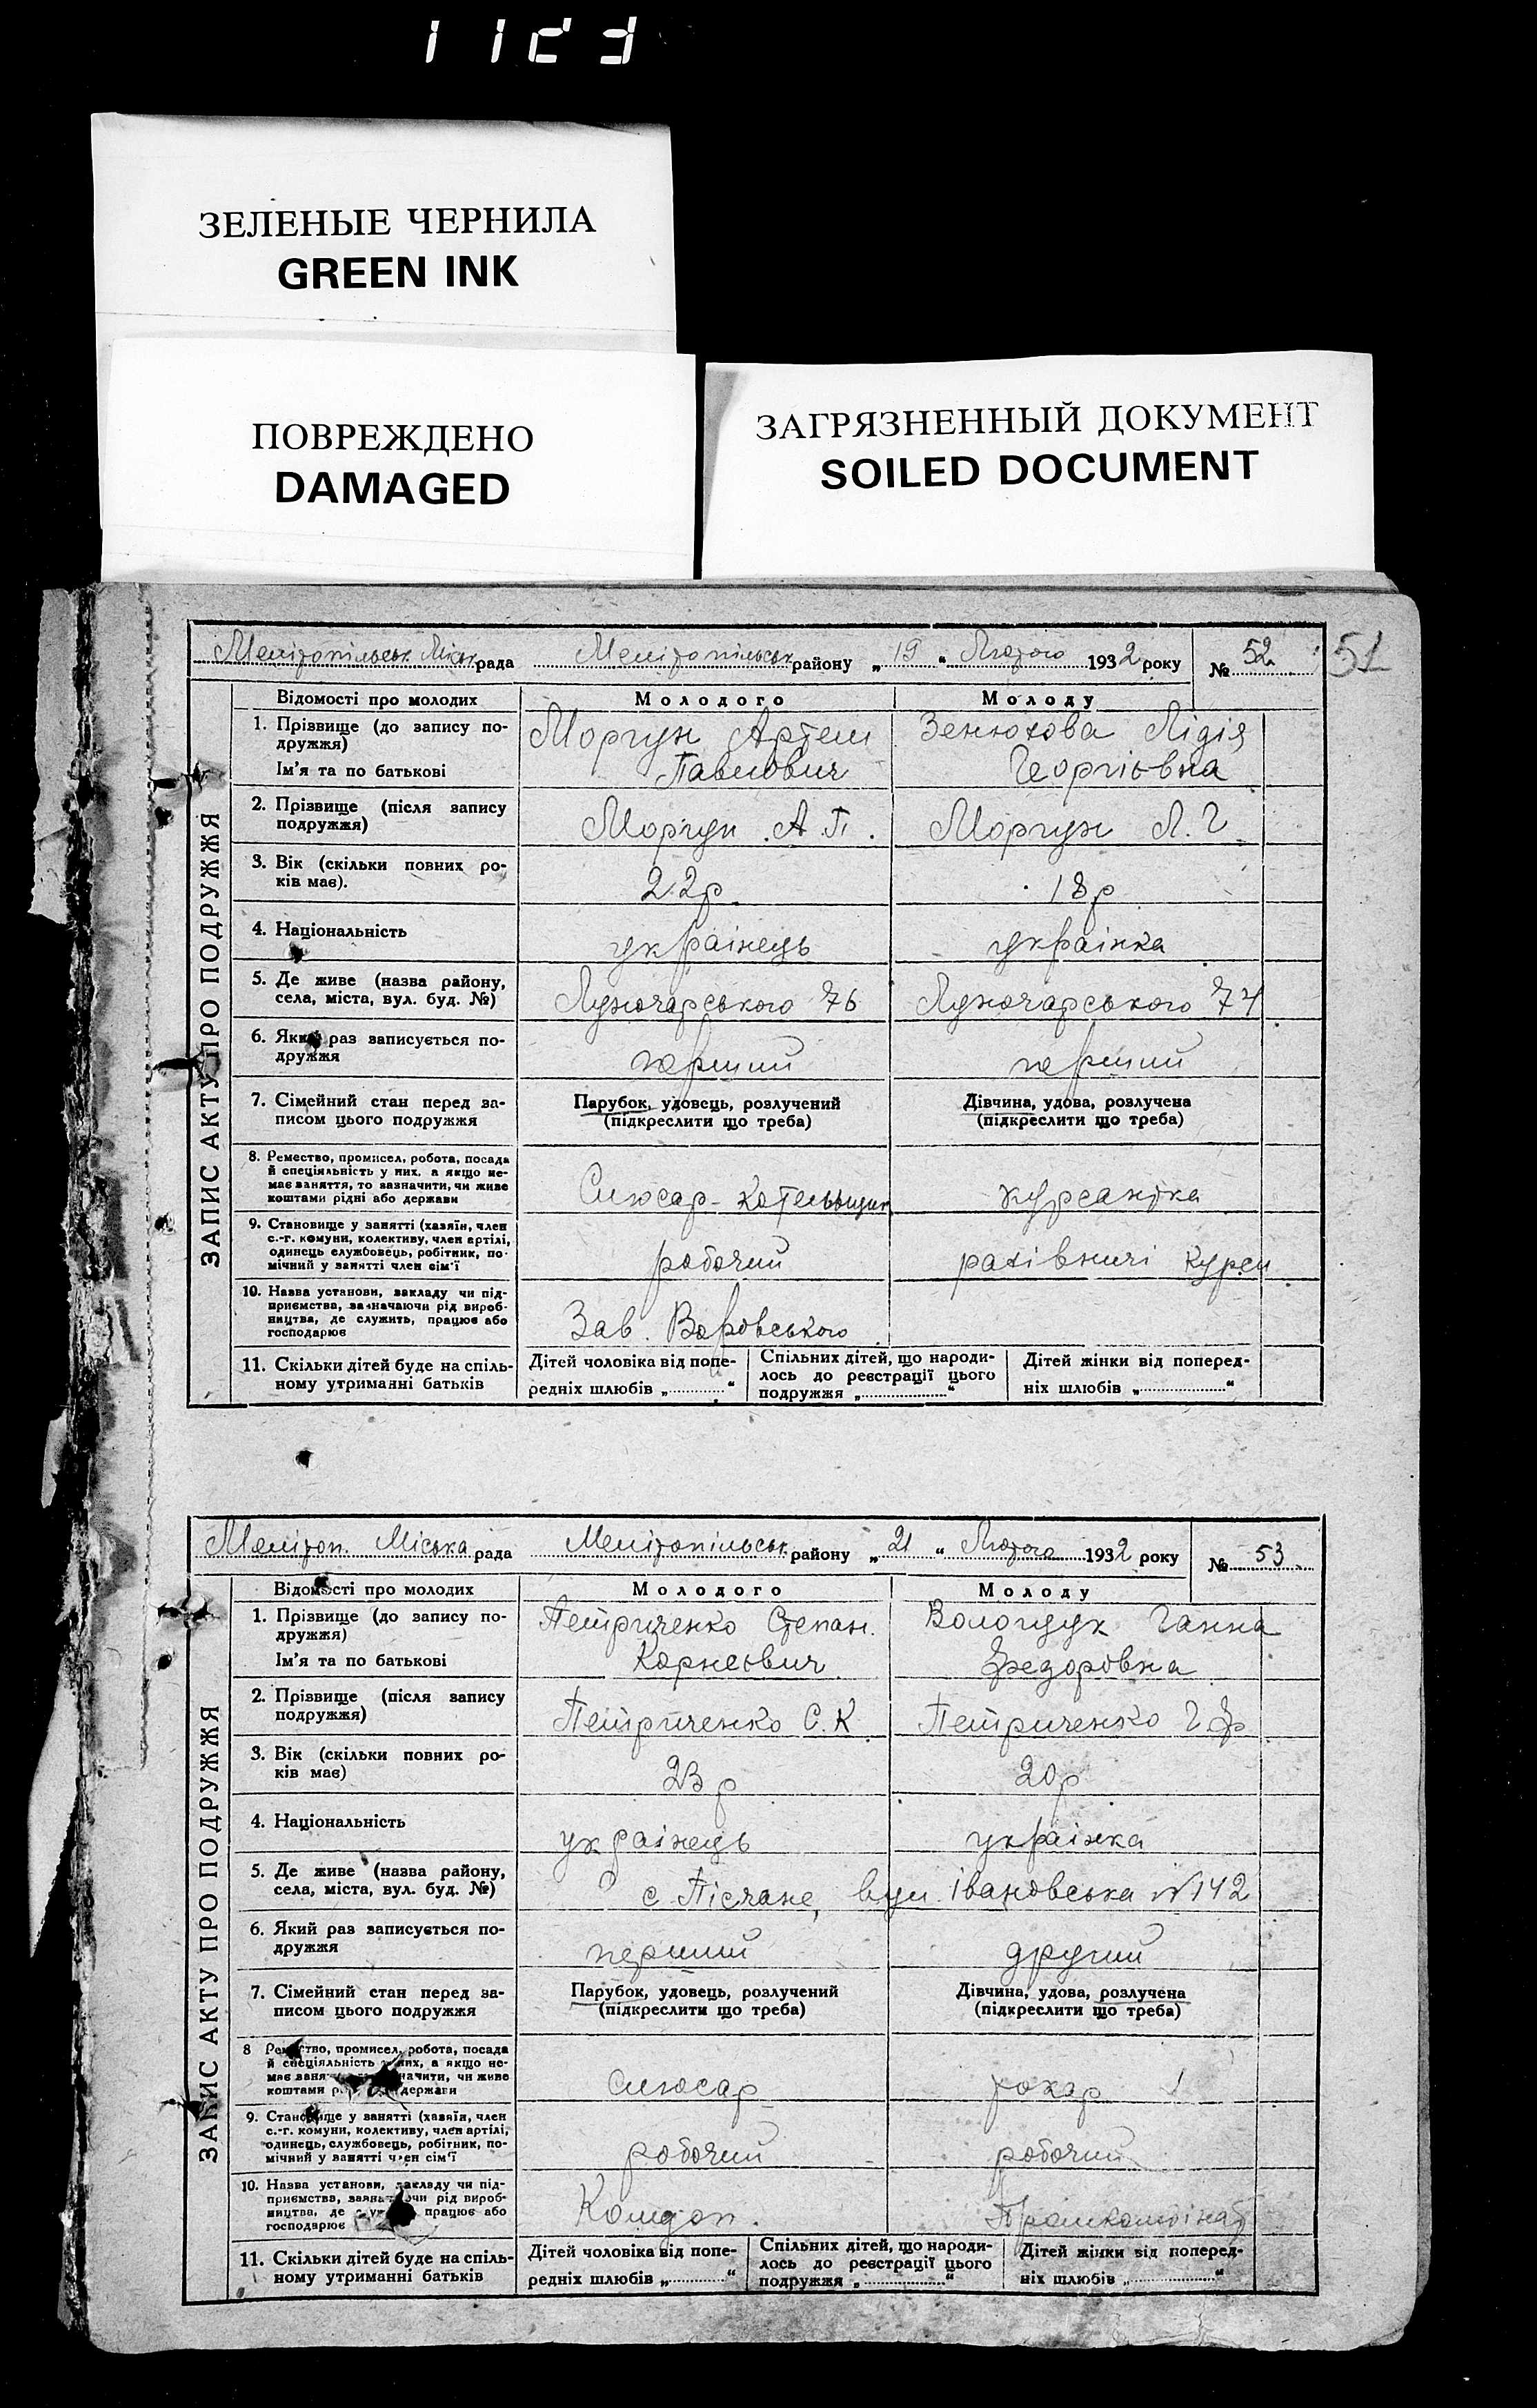 1123
ЗЕЛЕНЫЕ ЧЕРНИЛА
GREEN INK
ПОВРЕЖДЕНО
DAMAGED
ЗАГРЯЗНЕННЫЙ ДОКУМЕНТ
SOILED DOCUMENT
51
Мелітопільськ. Міськ рада Мелітопільськ району „19“ Лютого 1932 року № 52
ЗАПИС АКТУ ПРО ПОДРУЖЖЯ
Відомості про молодих Молодого Молоду
1. Прізвище (до запису по-
дружжя) Моргун Артем Зенюхова Лідія
Ім'я та по батькові Павлович Георгієвна
2. Прізвище (після запису
подружжя) Моргун А.П. Моргун Л.Г
3. Вік (скільки повних ро-
ків має). 22р. 18р
4. Національність українець українка
5. Де живе (назва району,
села, міста, вул. буд. №) Луночарського 76 Луночарського 74
6. Який раз записується по-
дружжя перший перший
7. Сімейний стан перед за- Парубок, удовець, розлучений Дівчина, удова, розлучена
писом цього подружжя (підкреслити що треба) (підкреслити що треба)
8. Ремество, промисел, робота, посада
й спеціяльність у них, а якщо не-
має заняття, то зазначити, чи живе
коштами рідні або держави Слюсар-котельщик курсантка
9. Становище у занятті (хазяїн, член
с.-г. комуни, колективу, член артілі,
одинець службовець, робітник, по-
мічний у занятті член сім'ї робочий рахівничі курси
10. Назва установи, закладу чи під-
приємства, зазначаючи рід вироб-
ництва, де служить, працює або
господарює Зав. Воровського
11. Скільки дітей буде на спіль- Дітей чоловіка від попе- Спільних дітей, що народи- Дітей жінки від поперед-
лось до реєстрації цього
ному утриманні батьків редніх шлюбів „............“ подружжя „............“ ніх шлюбів „............“
Мелітоп. Міська рада Мелітопільськ району „21“ Лютого 1932 року № 53
ЗАПИС АКТУ ПРО ПОДРУЖЖЯ
Відомості про молодих Молодого Молоду
1. Прізвище (до запису по-
дружжя) Петриченко Степан. Вологцук Ганна
Ім'я та по батькові Корнеєвич Федоровна
2. Прізвище (після запису
подружжя) Петриченко С.К Петриченко Г.Ф
3. Вік (скільки повних ро-
ків має) 23р 20р
4. Національність українець українка
5. Де живе (назва району,
села, міста, вул. буд. №) с. Пісчане, вул. Івановська №142
6. Який раз записується по-
дружжя перший другий
7. Сімейний стан перед за- Парубок, удовець, розлучений Дівчина, удова, розлучена
писом цього подружжя (підкреслити що треба) (підкреслити що треба)
8 Ремество, промисел, робота, посада
й спеціяльність у них, а якщо не-
має заня начити, чи живе
коштами держави слюсар токар
9. Становище у занятті (хазяїн, член
с.-г. комуни, колективу, член артілі,
одинець, службовець, робітник, по-
мічний у занятті член сім'ї робочий робочий
10. Назва установи, закладу чи під-
приємства, зазначаючи рід вироб-
ництва, де працює або
господарює Комдоп. Промкомбінат
11. Скільки дітей буде на спіль- Дітей чоловіка від попе- Спільних дітей, що народи- Дітей жінки від поперед-
лось до реєстрації цього
ному утриманні батьків редніх шлюбів „............“ подружжя „............“ ніх шлюбів „............“